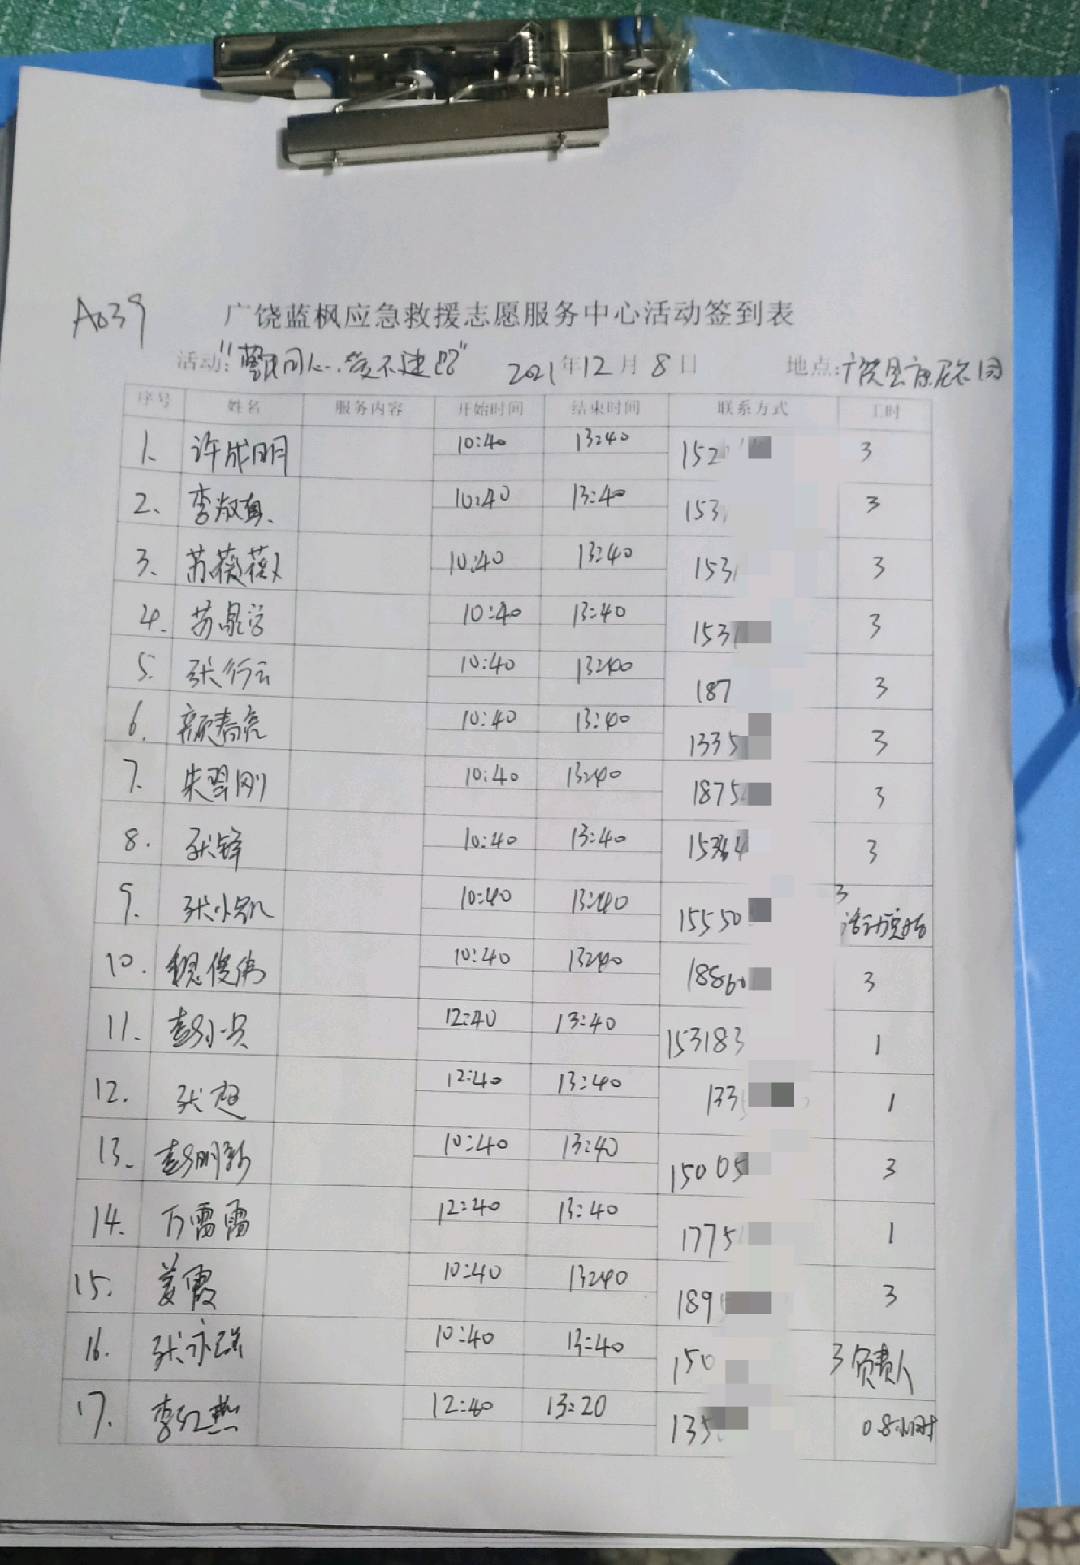 A039
广饶蓝枫应急救援志愿服务中心活动签到表
活动: 2021年12月8日 地点:
序号 姓名 服务内容 开始时间 结束时间 联系方式 工时
1. 许成明 10:40 13:40 152 3
2. 李 10:40 13:40 153 3
3. 苏薇薇 10:40 13:40 153 3
4. 苏泉 10:40 13:40 153 3
5. 张行云 10:40 13:40 187 3
6. 颜春亮 10:40 13:40 1335 3
7. 朱翠刚 10:40 13:40 1875 3
8. 张锋 10:40 13:40 15 3
9. 张小凯 10:40 13:40 15550 3
10. 魏俊伟 10:40 13:40 18860 3
11. 彭小兵 12:40 13:40 153183 1
12. 张 12:40 13:40 133 1
13. 彭明新 10:40 13:40 15005 3
14. 万雷雷 12:40 13:40 1775 1
15. 姜霞 10:40 13:40 189 3
16. 张亦 10:40 13:40 150 3 负责人
17. 李红燕 12:40 13:20 135 0.8小时